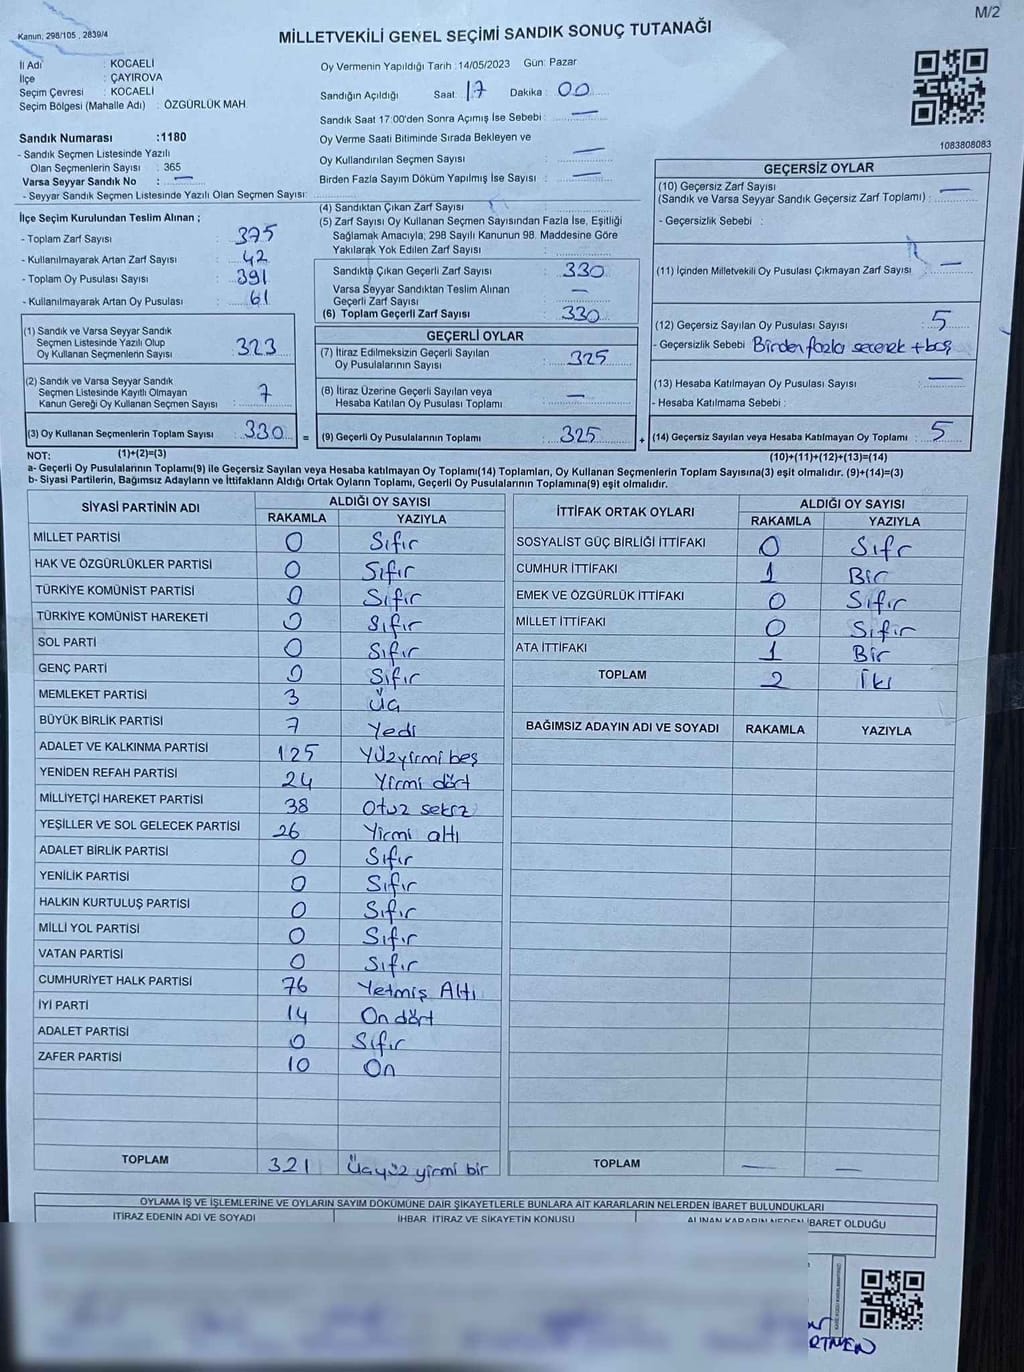 M/2
Kanun; 298/105 , 2839/4
MİLLETVEKİLİ GENEL SEÇİMİ SANDIK SONUÇ TUTANAĞI
İl Adı : KOCAELİ
İlçe : ÇAYIROVA
Seçim Çevresi : KOCAELİ
Seçim Bölgesi (Mahalle Adı) : ÖZGÜRLÜK MAH.
Sandık Numarası :1180
- Sandık Seçmen Listesinde Yazılı
Olan Seçmenlerin Sayısı : 365
Varsa Seyyar Sandık No : —
- Seyyar Sandık Seçmen Listesinde Yazılı Olan Seçmen Sayısı:
İlçe Seçim Kurulundan Teslim Alınan ;
- Toplam Zarf Sayısı : 375
- Kullanılmayarak Artan Zarf Sayısı : 42
- Toplam Oy Pusulası Sayısı : 391
- Kullanılmayarak Artan Oy Pusulası : 61
(1) Sandık ve Varsa Seyyar Sandık
Seçmen Listesinde Yazılı Olup
Oy Kullanan Seçmenlerin Sayısı : 323
(2) Sandık ve Varsa Seyyar Sandık
Seçmen Listesinde Kayıtlı Olmayan
Kanun Gereği Oy Kullanan Seçmen Sayısı : 7
(3) Oy Kullanan Seçmenlerin Toplam Sayısı : 330
(1)+(2)=(3)
Oy Vermenin Yapıldığı Tarih :14/05/2023 Gün: Pazar
Sandığın Açıldığı Saat: 17 Dakika : 00
Sandık Saat 17:00'den Sonra Açımış İse Sebebi : —
Oy Verme Saati Bitiminde Sırada Bekleyen ve
Oy Kullandırılan Seçmen Sayısı : —
Birden Fazla Sayım Döküm Yapılmış İse Sayısı : —
(4) Sandıktan Çıkan Zarf Sayısı :
(5) Zarf Sayısı Oy Kullanan Seçmen Sayısından Fazla İse, Eşitliği
Sağlamak Amacıyla; 298 Sayılı Kanunun 98. Maddesine Göre
Yakılarak Yok Edilen Zarf Sayısı :
Sandıkta Çıkan Geçerli Zarf Sayısı : 330
Varsa Seyyar Sandıktan Teslim Alınan
Geçerli Zarf Sayısı : —
(6) Toplam Geçerli Zarf Sayısı : 330
GEÇERLİ OYLAR
(7) İtiraz Edilmeksizin Geçerli Sayılan
Oy Pusulalarının Sayısı : 325
(8) İtiraz Üzerine Geçerli Sayılan veya
Hesaba Katılan Oy Pusulası Toplamı : —
= (9) Geçerli Oy Pusulalarının Toplamı : 325
1083808083
GEÇERSİZ OYLAR
(10) Geçersiz Zarf Sayısı
(Sandık ve Varsa Seyyar Sandık Geçersiz Zarf Toplamı) : —
- Geçersizlik Sebebi :
(11) İçinden Milletvekili Oy Pusulası Çıkmayan Zarf Sayısı : —
(12) Geçersiz Sayılan Oy Pusulası Sayısı : 5
- Geçersizlik Sebebi : Birden fazla seçenek + boş
(13) Hesaba Katılmayan Oy Pusulası Sayısı : —
- Hesaba Katılmama Sebebi :
+ (14) Geçersiz Sayılan veya Hesaba Katılmayan Oy Toplamı : 5
(10)+(11)+(12)+(13)=(14)
NOT:
a- Geçerli Oy Pusulalarının Toplamı(9) ile Geçersiz Sayılan veya Hesaba katılmayan Oy Toplamı(14) Toplamları, Oy Kullanan Seçmenlerin Toplam Sayısına(3) eşit olmalıdır. (9)+(14)=(3)
b- Siyasi Partilerin, Bağımsız Adayların ve İttifakların Aldığı Ortak Oyların Toplamı, Geçerli Oy Pusulalarının Toplamına(9) eşit olmalıdır.
SİYASİ PARTİNİN ADI ALDIĞI OY SAYISI
RAKAMLA YAZIYLA
MİLLET PARTİSİ 0 Sıfır
HAK VE ÖZGÜRLÜKLER PARTİSİ 0 Sıfır
TÜRKİYE KOMÜNİST PARTİSİ 0 Sıfır
TÜRKİYE KOMÜNİST HAREKETİ 0 Sıfır
SOL PARTİ 0 Sıfır
GENÇ PARTİ 0 Sıfır
MEMLEKET PARTİSİ 3 Üç
BÜYÜK BİRLİK PARTİSİ 7 Yedi
ADALET VE KALKINMA PARTİSİ 125 Yüzyirmi beş
YENİDEN REFAH PARTİSİ 24 Yirmi dört
MİLLİYETÇİ HAREKET PARTİSİ 38 Otuz sekiz
YEŞİLLER VE SOL GELECEK PARTİSİ 26 Yirmi altı
ADALET BİRLİK PARTİSİ 0 Sıfır
YENİLİK PARTİSİ 0 Sıfır
HALKIN KURTULUŞ PARTİSİ 0 Sıfır
MİLLİ YOL PARTİSİ 0 Sıfır
VATAN PARTİSİ 0 Sıfır
CUMHURİYET HALK PARTİSİ 76 Yetmiş Altı
İYİ PARTİ 14 On dört
ADALET PARTİSİ 0 Sıfır
ZAFER PARTİSİ 10 On
TOPLAM 321 Üçyüz yirmi bir
İTTİFAK ORTAK OYLARI ALDIĞI OY SAYISI
RAKAMLA YAZIYLA
SOSYALİST GÜÇ BİRLİĞİ İTTİFAKI 0 Sıfır
CUMHUR İTTİFAKI 1 Bir
EMEK VE ÖZGÜRLÜK İTTİFAKI 0 Sıfır
MİLLET İTTİFAKI 0 Sıfır
ATA İTTİFAKI 1 Bir
TOPLAM 2 İki
BAĞIMSIZ ADAYIN ADI VE SOYADI RAKAMLA YAZIYLA
TOPLAM — —
OYLAMA İŞ VE İŞLEMLERİNE VE OYLARIN SAYIM DÖKÜMÜNE DAİR ŞİKAYETLERLE BUNLARA AİT KARARLARIN NELERDEN İBARET BULUNDUKLARI
İTİRAZ EDENİN ADI VE SOYADI İHBAR, İTİRAZ VE ŞİKAYETİN KONUSU ALINAN KARARIN NEDEN İBARET OLDUĞU